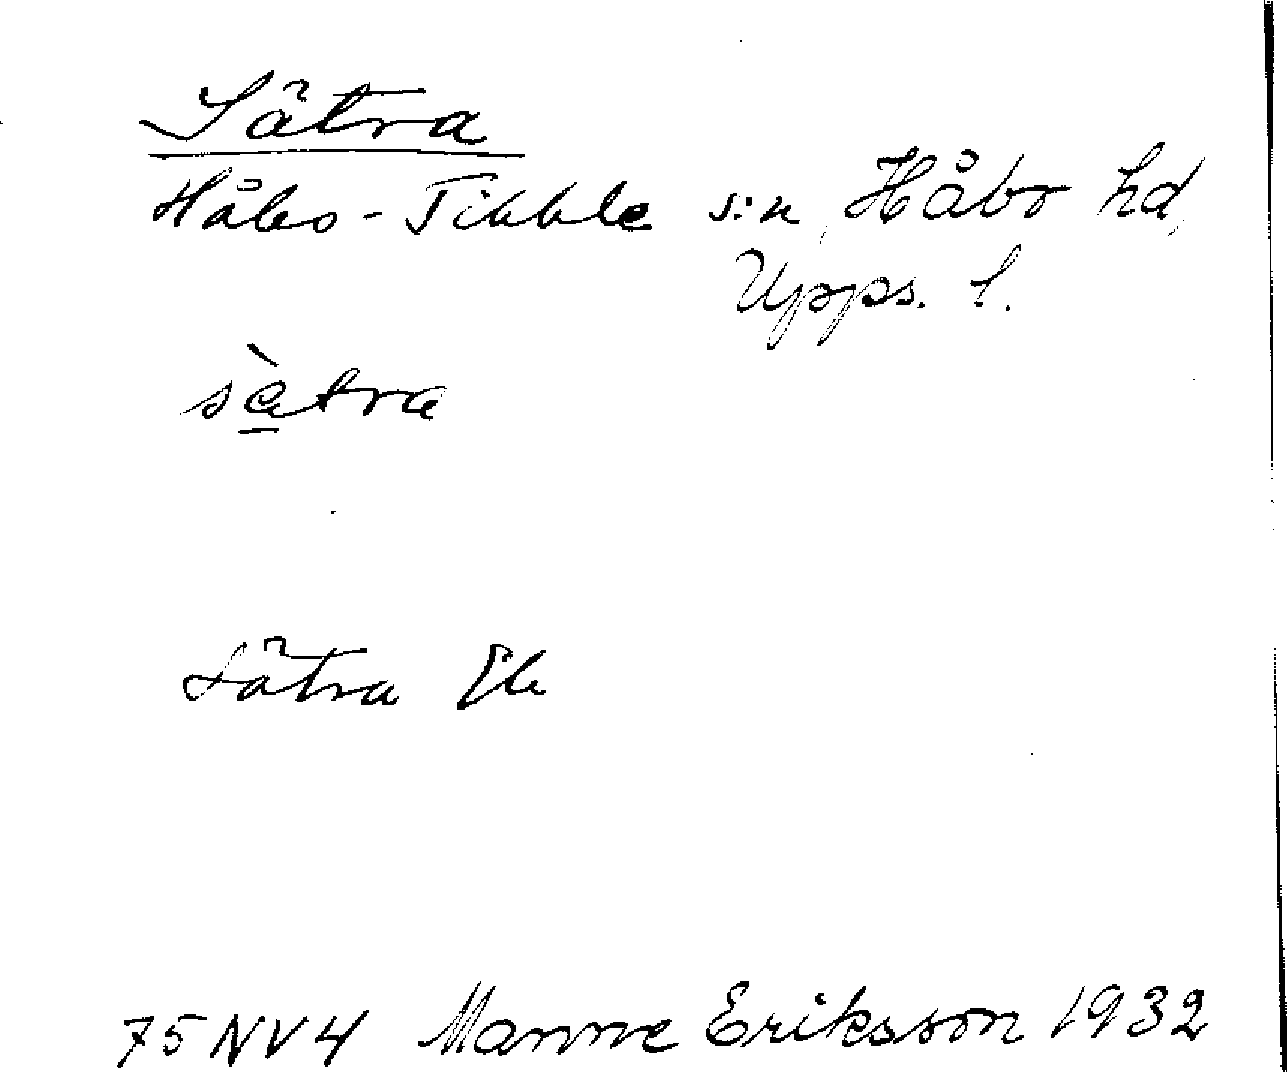 Sätra
Håbo-Tibble s:n, Håbo hd,
Upps. l.
sætra
Sätra Ek
75 NV 4 Manne Eriksson 1932